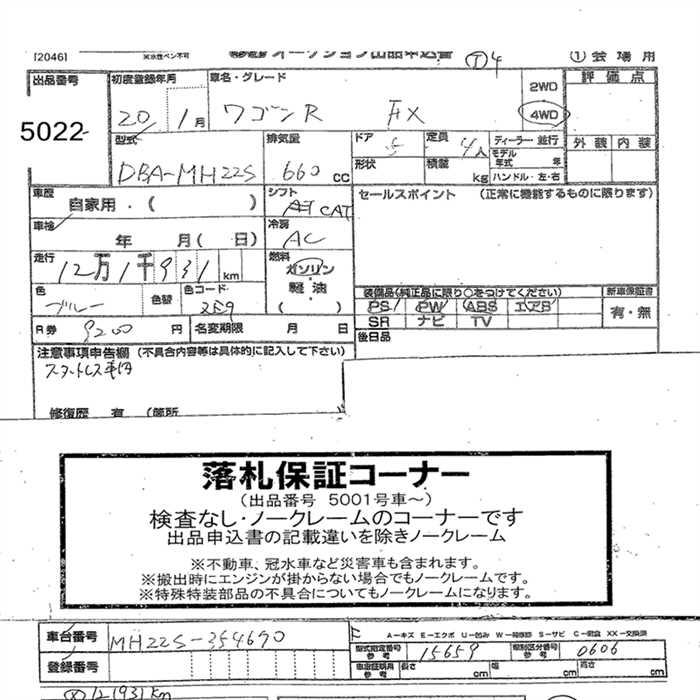 [2046]
オークション出品申込書
① 会場用
出品番号
5022
初度登録年月
20 1月
車名・グレード
ワゴンR FX
2WD
4WD
評価点
外装 内装
型式
DBA-MH22S
排気量
660 cc
ドア
5
定員
4人
ディーラー 並行
モデル年式 年
形状
積載 kg
ハンドル・左・右
車歴
自家用・( )
シフト
AT CAT
セールスポイント (正常に機能するものに限ります)
車検
年 月( 日)
冷房
AC
走行
12万1千931km
燃料
ガソリン
軽油
( )
色
ブルー
色替
色コード
装備品(純正品に限り○をつけてください)
PS PW ABS エアB
SR ナビ TV
新車保証書
有・無
R券 9200 円
名変期限 月 日
後日品
注意事項申告欄 (不具合内容等は具体的に記入して下さい)
スタットレス
修復歴 有 (箇所
落札保証コーナー
(出品番号 5001号車~)
検査なし・ノークレームのコーナーです
出品申込書の記載違いを除きノークレーム
※不動車、冠水車など災害車も含まれます。
※搬出時にエンジンが掛からない場合でもノークレームです。
※特殊特装部品の不具合についてもノークレームになります。
車台番号
MH22S-354690
A-キズ E-エクボ U-凹み W-補修跡 S-サビ C-腐食 XX-交換済
型式指定番号 参考
15659
類別区分番号 参考
0606
登録番号
車庫証明用 参考
長さ cm 幅 cm 高さ cm
121931km